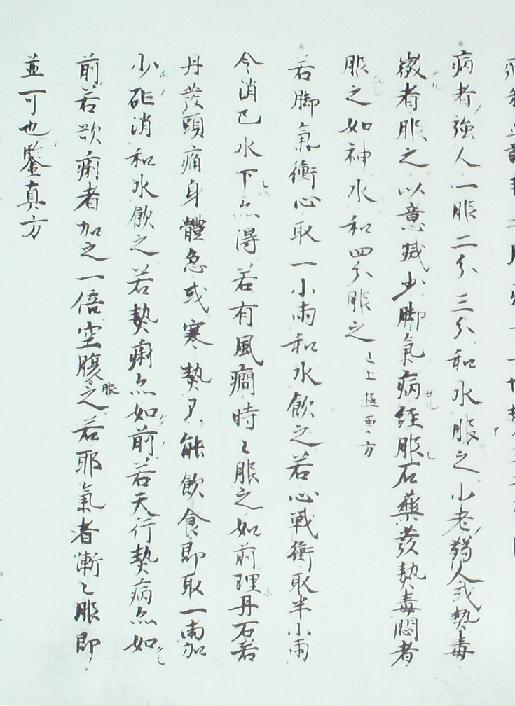 病者強人一服二分三分和水服之小老弱人或熱毒
微者服之以意減少脚氣病經服石藥發熱毒悶者
服之如神水和四分服之
若脚氣衝心取一小兩和水飲之若心戰衝取半小兩
令消已水下亦得若有風癎時〻服之如前理丹石若
丹發頭痛身體急或寒熱不能飲食即取一兩加
少石消和水飲之若熱痢亦如前若天行熱病亦如
前若欲痢者加之一倍空腹服之若邪氣者漸〻服即
並可也鑒真方